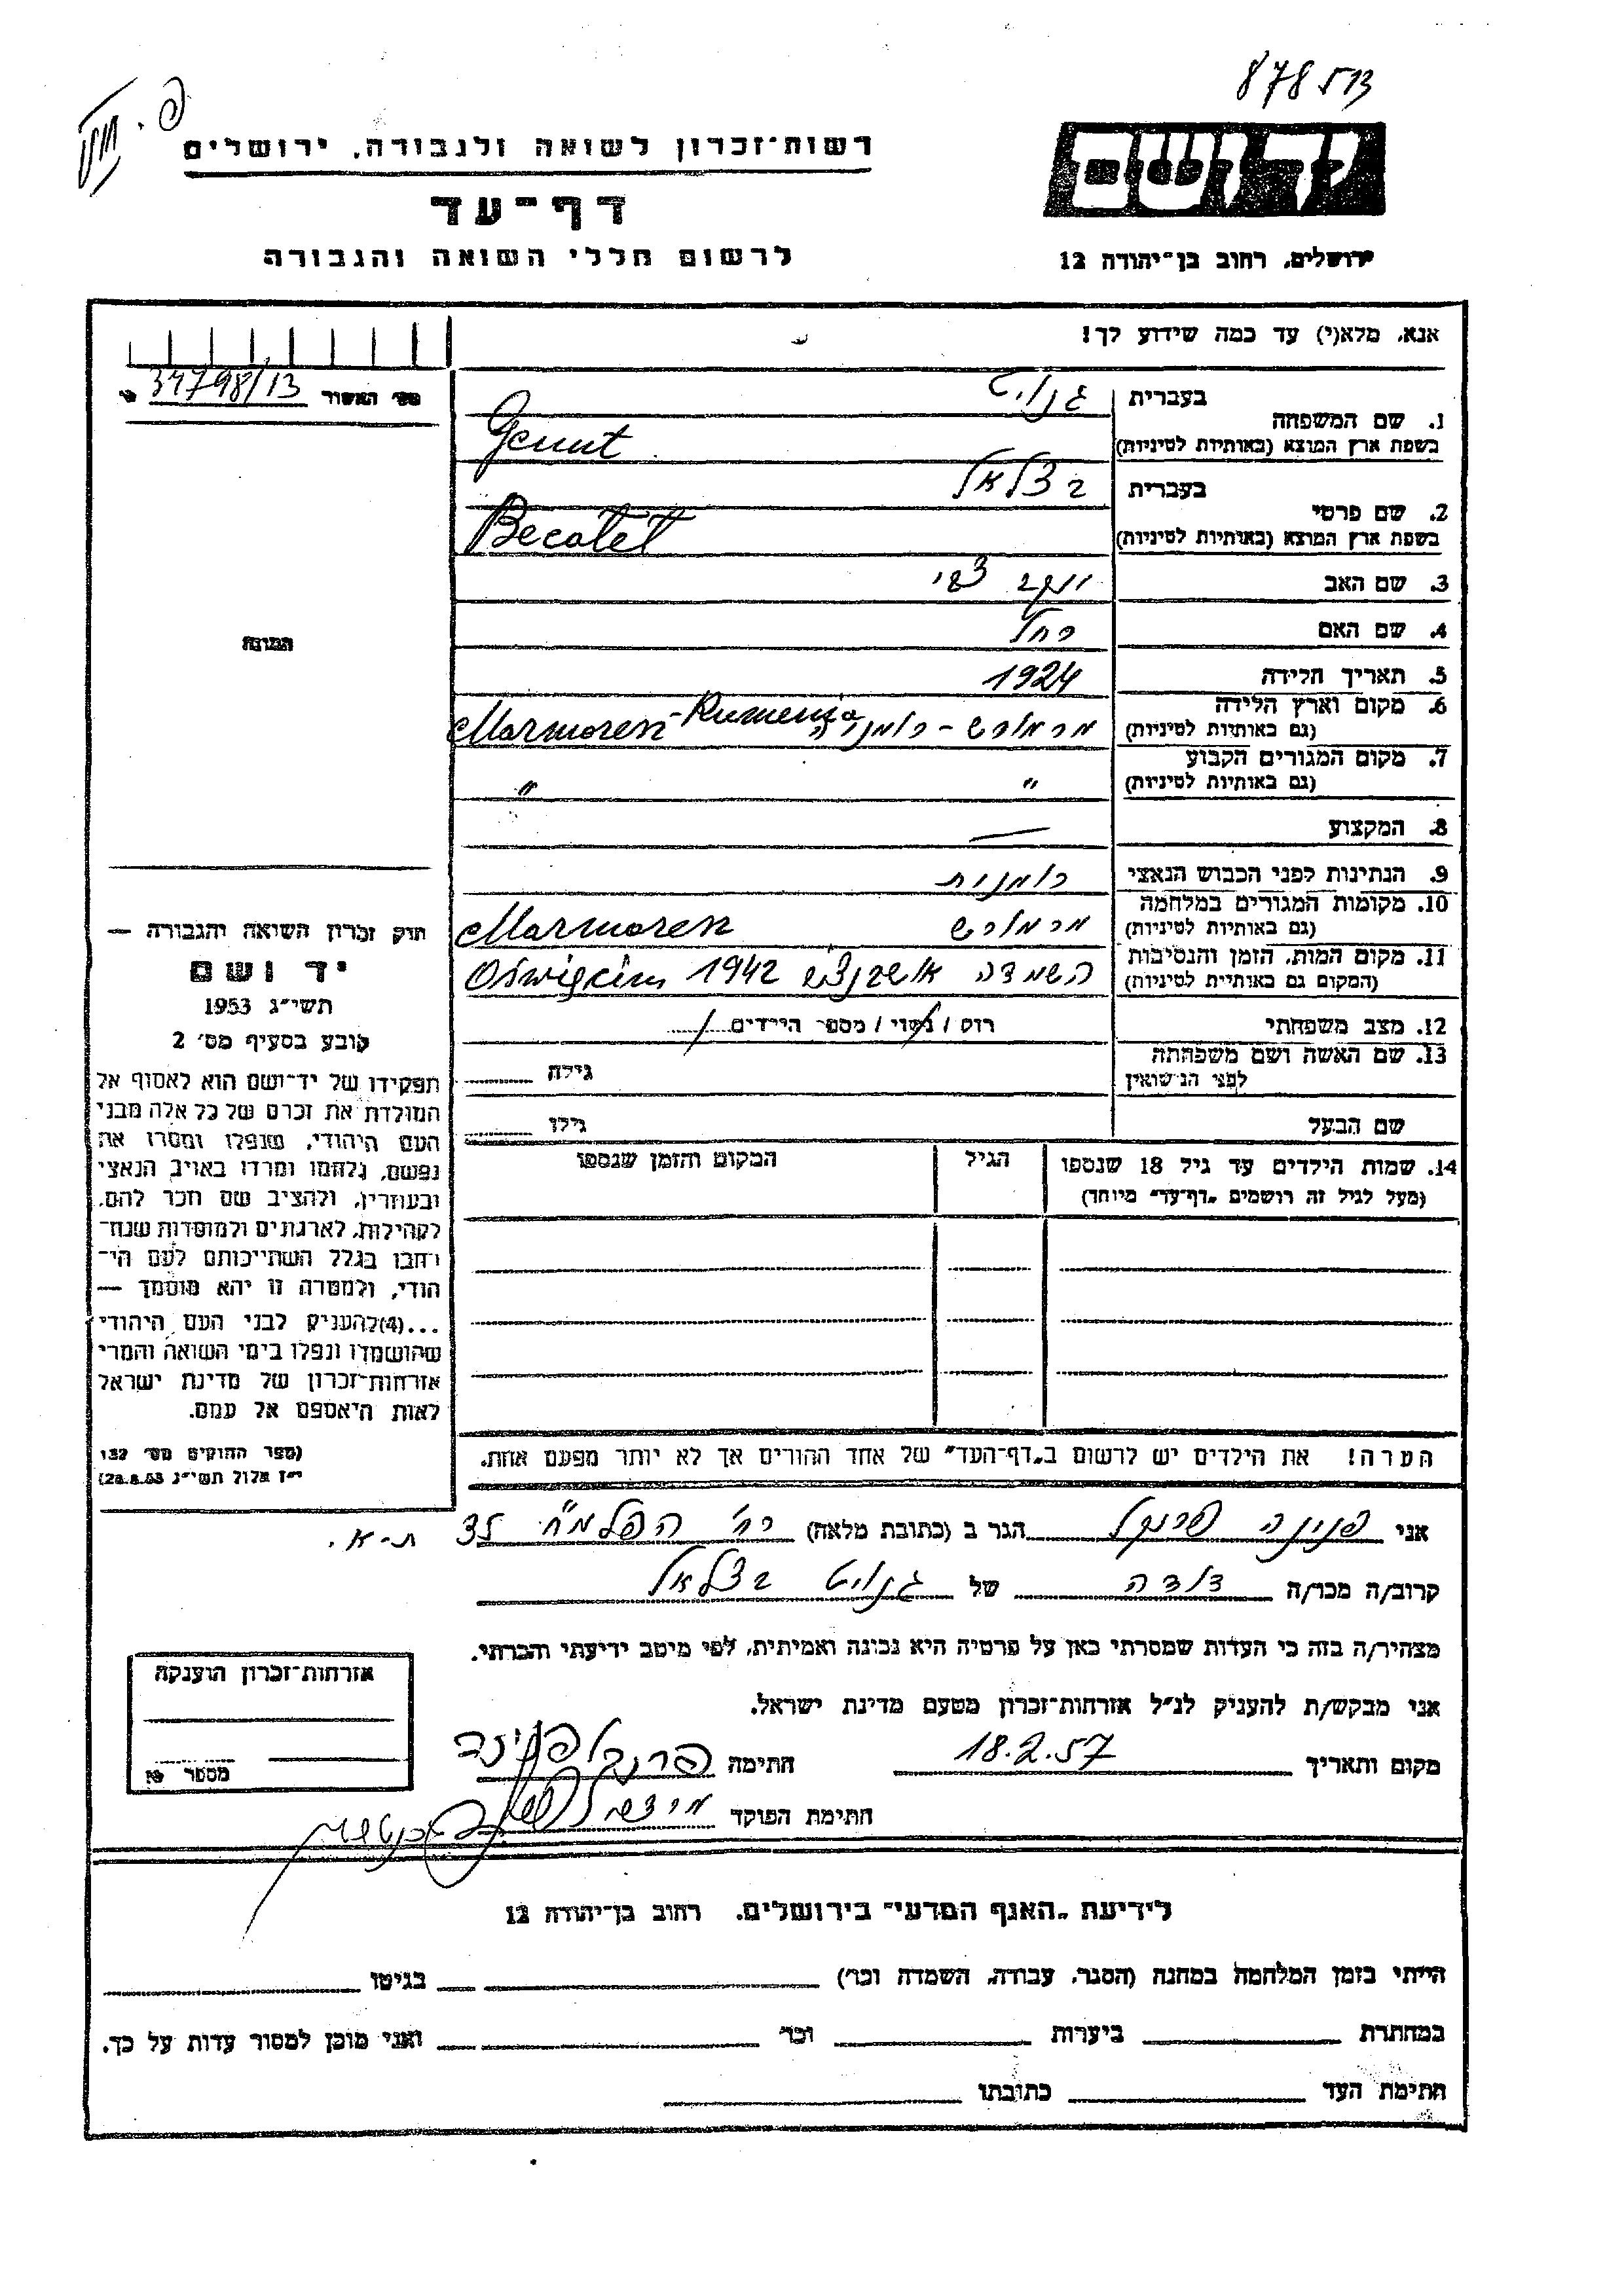 878513
רשות־זכרון לשואה ולגבורה, ירושלים
דף־עד
לרשום חללי השואה והגבורה
ידושם
ירושלים, רחוב בן־יהודה 12
אנא, מלא(י) עד כמה שידוע לך!
מס' האשור 34798/13
1. שם המשפחה בעברית גנוט
בשפת ארץ המוצא (באותיות לטיניות) Genut
2. שם פרטי בעברית בצלאל
בשפת ארץ המוצא (באותיות לטיניות) Becalel
3. שם האב יעקב צבי
4. שם האם רחל
5. תאריך הלידה 1924
6. מקום וארץ הלידה (גם באותיות לטיניות) מרמורש - רומניה Marmoren - Rumenia
7. מקום המגורים הקבוע (גם באותיות לטיניות) " "
8. המקצוע —
9. הנתינות לפני הכבוש הנאצי רומנית
10. מקומות המגורים במלחמה (גם באותיות לטיניות) מרמורש Marmoren
11. מקום המות, הזמן והנסיבות (המקום גם באותיות לטיניות) השמדה אושבנצים 1942 Oświęcim
12. מצב משפחתי רווק / נשוי / מספר הילדים /
13. שם האשה ושם משפחתה לפני הנישואין גילה
שם הבעל גילו
14. שמות הילדים עד גיל 18 שנספו (מעל לגיל זה רושמים "דף־עד" מיוחד) הגיל המקום והזמן שנספו
הערה! את הילדים יש לרשום ב"דף־העד" של אחד ההורים אך לא יותר מפעם אחת.
התמונה
חוק זכרון השואה והגבורה —
יד ושם
תשי"ג 1953
קובע בסעיף מס' 2
תפקידו של יד־ושם הוא לאסוף אל
המולדת את זכרם של כל אלה מבני
העם היהודי, שנפלו ומסרו את
נפשם, נלחמו ומרדו באויב הנאצי
ובעוזריו, ולהציב שם וזכר להם,
לקהילות, לארגונים ולמוסדות שנח־
רבו בגלל השתייכותם לעם הי־
הודי, ולמטרה זו יהא מוסמך —
...(4) להעניק לבני העם היהודי
שהושמדו ונפלו בימי השואה והמרי
אזרחות־זכרון של מדינת ישראל
לאות היאספם אל עמם.
(ספר החוקים מס' 132
י"ז אלול תשי"ג 28.8.53)
אני פנינה פרנקל הגר ב (כתובת מלאה) רח' הפלמ"ח 35 ת-א.
קרוב/ה מכר/ה דודה של גנוט בצלאל
מצהיר/ה בזה כי העדות שמסרתי כאן על פרטיה היא נכונה ואמיתית, לפי מיטב ידיעתי והכרתי.
אני מבקש/ת להעניק לנ"ל אזרחות־זכרון מטעם מדינת ישראל.
מקום ותאריך 18.2.57 חתימה פרנקל פנינה
חתימת הפוקד
אזרחות־זכרון הוענקה
מספר
לידיעת "האגף המדעי" בירושלים, רחוב בן־יהודה 12
הייתי בזמן המלחמה במחנה (הסגר, עבודה, השמדה וכו') בגיטו
במחתרת ביערות וכו' ואני מוכן למסור עדות על כך.
חתימת העד כתובתו